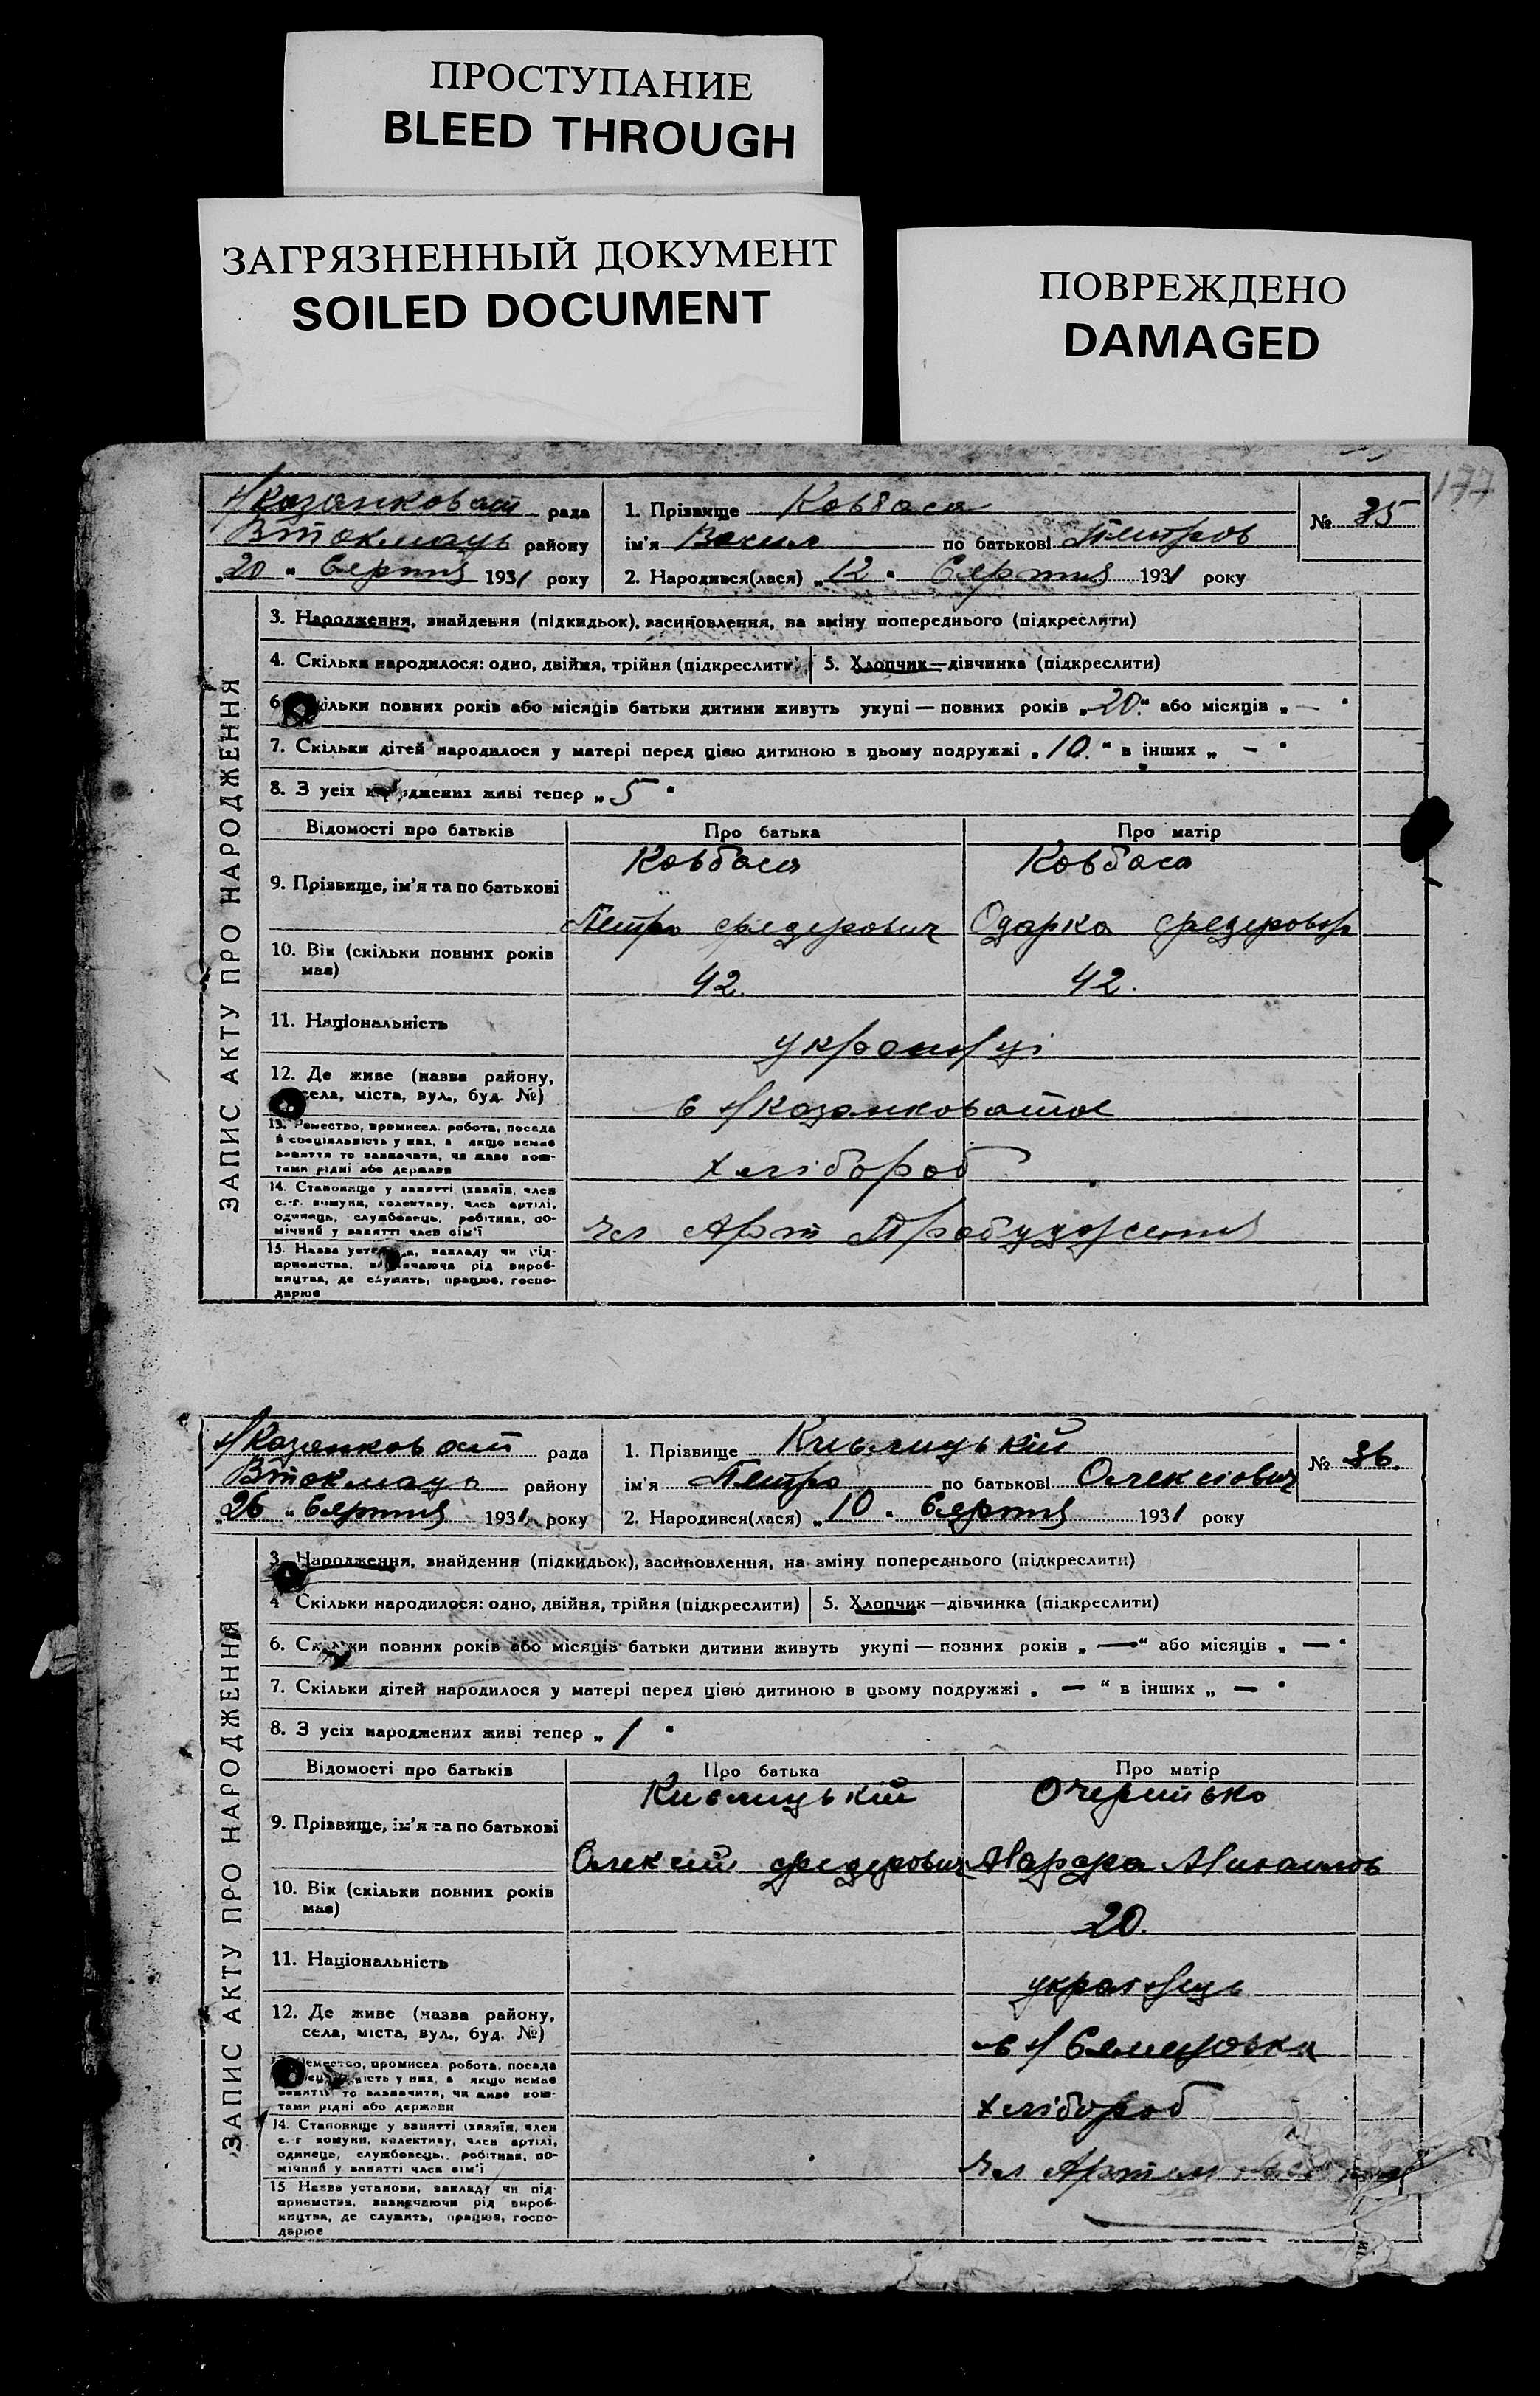 ПРОСТУПАНИЕ
BLEED THROUGH
ЗАГРЯЗНЕННЫЙ ДОКУМЕНТ
SOILED DOCUMENT
ПОВРЕЖДЕНО
DAMAGED
177
Н/Казанковат рада
Втокмаць району
„20“ Серпня 1931 року
1. Прізвище Ковбаса
ім'я по батькові Петров
2. Народився(лася) „12“ Серпня 1931 року
№ 35
ЗАПИС АКТУ ПРО НАРОДЖЕННЯ
3. Народження, знайдення (підкидьок), засиновлення, на зміну попереднього (підкреслити)
4. Скільки народилося: одно, двійня, трійня (підкреслити)
5. Хлопчик—дівчинка (підкреслити)
6. Скільки повних років або місяців батьки дитини живуть укупі — повних років „20.“ або місяців „—“
7. Скільки дітей народилося у матері перед цією дитиною в цьому подружжі „10.“ в інших „—“
8. З усіх народжених живі тепер „5“
Відомості про батьків Про батька Про матір
Ковбаса Ковбаса
9. Прізвище, ім'я та по батькові
Петро Федерович Одарка Федеровн
10. Вік (скільки повних років має)
42. 42.
11. Національність
українці
12. Де живе (назва району,
села, міста, вул., буд. №)
с Н/Казанковатое
13. Ремество, промисел. робота, посада
й спеціяльність у них, а якщо немає
заняття то зазначити, чи живе кош-
тами рідні або держави
хлібороб
14. Становище у занятті (хазяїн, член
с.-г. комуни, колективу, член артілі,
одинець, службовець, робітник, по-
мічний у занятті член сім'ї
Чл Арт Пробудження
15. Назва установи, закладу чи під-
приємства, зазначаючи рід вироб-
ництва, де служить, працює, госпо-
дарює
Н/Казанковат рада
Втокмаць району
„26“ Серпня 1931 року
1. Прізвище Кислицькій
ім'я Петро по батькові Олексіович
2. Народився(лася) „10“ Серпня 1931 року
№ 36.
ЗАПИС АКТУ ПРО НАРОДЖЕННЯ
3. Народження, знайдення (підкидьок), засиновлення, на зміну попереднього (підкреслити)
4 Скільки народилося: одно, двійня, трійня (підкреслити)
5. Хлопчик—дівчинка (підкреслити)
6. Скільки повних років або місяців батьки дитини живуть укупі — повних років „—“ або місяців „—“
7. Скільки дітей народилося у матері перед цією дитиною в цьому подружжі „—“ в інших „—“
8. З усіх народжених живі тепер „1“
Відомості про батьків Про батька Про матір
Кислицькій
9. Прізвище, ім'я та по батькові
Олексій Федерович Марфа Михаилов
10. Вік (скільки повних років має)
20.
11. Національність
українець
12. Де живе (назва району,
села, міста, вул., буд. №)
13. Ремество, промисел. робота, посада
й спеціяльність у них, а якщо немає
заняття то зазначити, чи живе кош-
тами рідні або держави
хлібороб
14. Становище у занятті (хазяїн, член
с.-г комуни, колективу, член артілі,
одинець, службовець, робітник, по-
мічний у занятті член сім'ї
Чл Артіли
15 Назва установи, закладу чи під-
приємства, зазначаючи рід вироб-
ництва, де служить, працює, госпо-
дарює